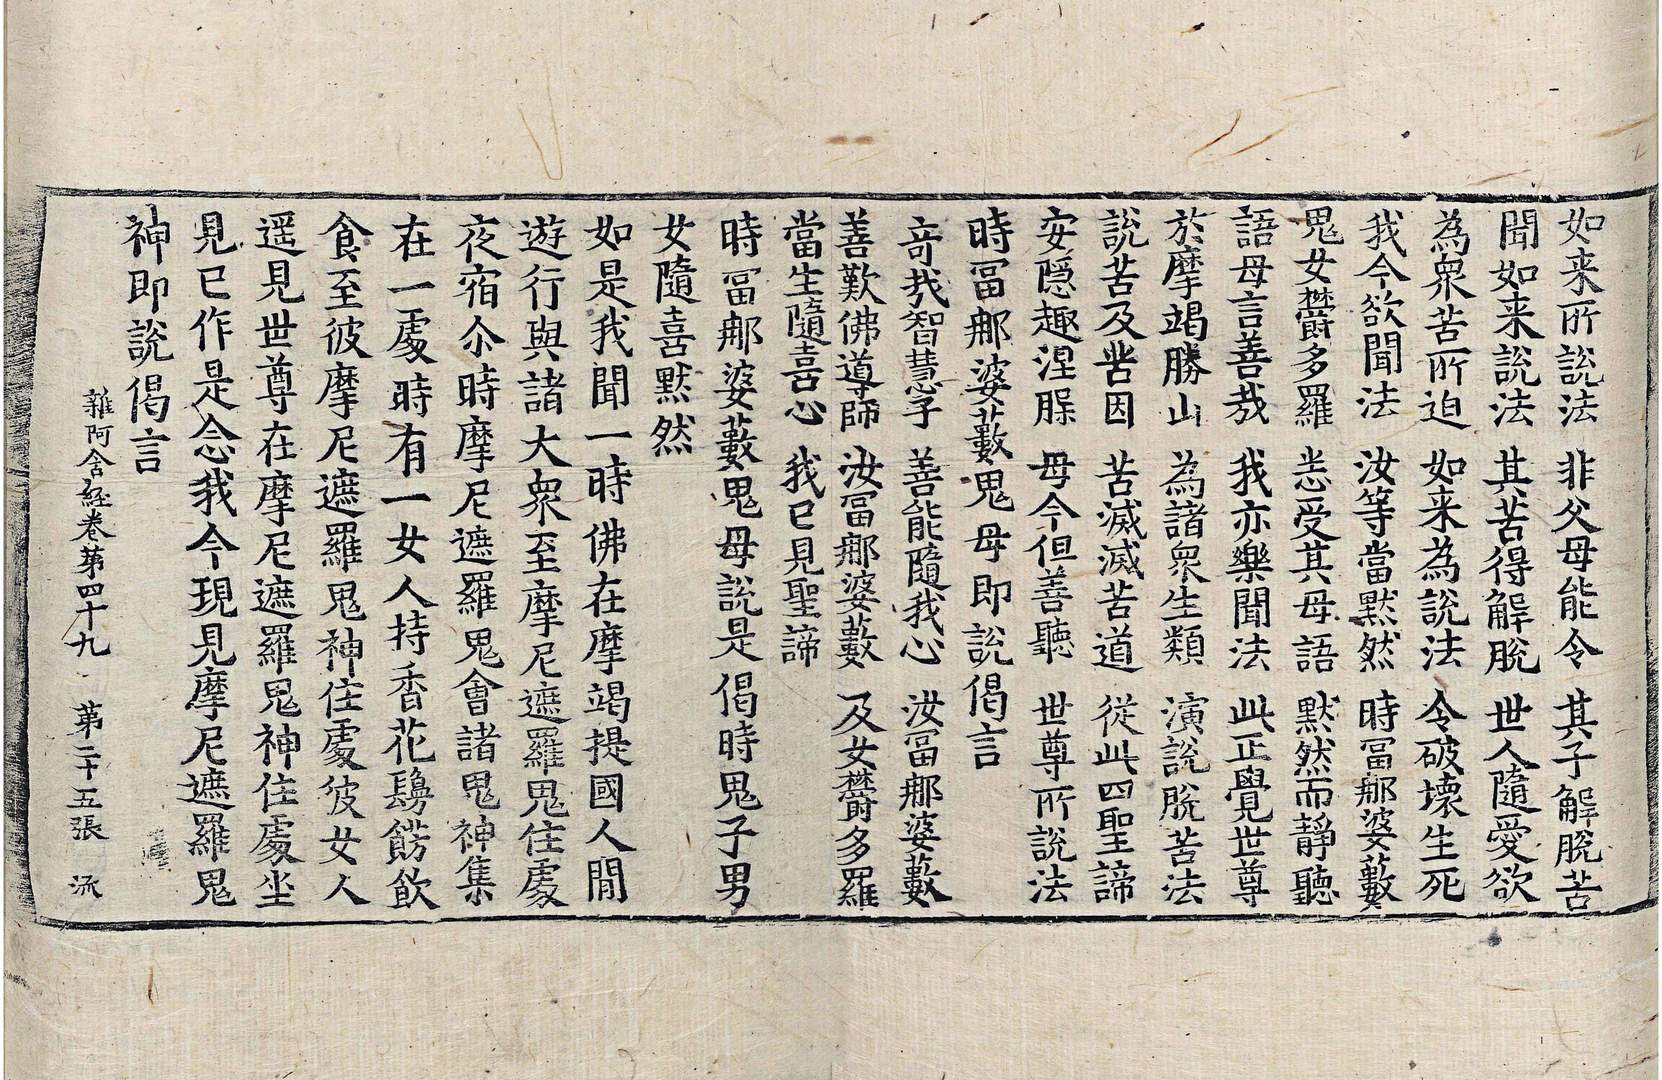 如来所說法　非父母能令　其子解脫苦
聞如来說法　其苦得解脫　世人隨愛欲
為衆苦所迫　如来為說法　令破壞生死
我今欲聞法　汝等當默然　時冨那婆藪
鬼女欝多羅　悉受其母語　默然而靜聽
語母言善哉　我亦樂聞法　此正覺世尊
於摩竭勝山　為諸衆生類　演說脫苦法
說苦及苦因　苦滅滅苦道　從此四聖諦
安隱趣涅槃　母今但善聽　世尊所說法
時冨那婆藪鬼母即說偈言
奇哉智慧子　善能隨我心　汝冨那婆藪
善歎佛導師　汝冨那婆藪　及女欝多羅
當生隨喜心　我已見聖諦
時冨那婆藪鬼母說是偈時鬼子男
女隨喜默然
如是我聞一時佛在摩竭提國人間
遊行與諸大衆至摩尼遮羅鬼住處
夜宿尒時摩尼遮羅鬼會諸鬼神集
在一處時有一女人持香花鬘餝飲
食至彼摩尼遮羅鬼神住處彼女人
遥見世尊在摩尼遮羅鬼神住處坐
見已作是念我今現見摩尼遮羅鬼
神即說偈言
雜阿含経卷第四十九　第二十五張　流